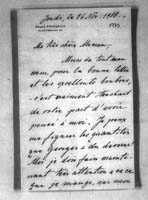 Jeudi, le 26 Nov. 1918.
Ma très chère Maman,
Merci de tout mon
cœur, pour la bonne lettre
et les excellents bonbons,
c'est vraiment touchant
de votre part d'avoir
pensé à moi. Je peux
me figurer les quantités
que Georges a dû dévorer!
Moi, je dois faire mainte-
nant très attention à ce
que je mange, car mon